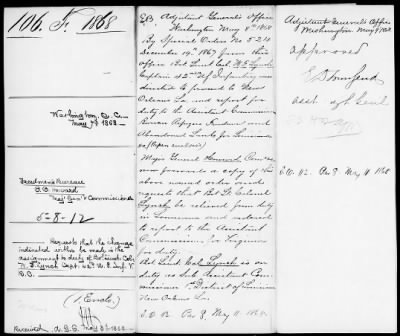 106. F. 1868
Washington, D.C.
May 7th 1868.
Freedmen's Bureau
O. O. Howard
Maj. Gen'l Commissioner
5-8-12
Requests that the change
indicated within be made in the
assignment to duty of
W. H. Lynch Capt. 42d U.S. Inf. V.
R.C.
(1 Enclo.)
Received A.G.O. May 8th 1868
Adjutant General's Office
Washington May 8th 1868
By Special Orders No 520
December 14th 1867 from this
office Bvt Lieut Col W. H. Lynch
Captain 42nd U.S. Infantry was
directed to proceed to New
Orleans La and report for
duty to the Assistant Commissioner
Bureau Refugees Freedmen and
Abandoned Lands for Louisiana
Major General Howard Com-
missioner forwards a copy of the
above named order and
requests that Bvt Lt Colonel
Lynch be relieved from duty
in Louisiana and ordered
to report to the Assistant
Commissioner for
for duty.
Bvt Lieut Col Lynch is on
duty as Sub Assistant Com-
missioner 1st District of Louisiana
New Orleans La.
S.O. 112 Par 8, May 11 1868
Adjutant General's Office
Washington May 9, 1868
approved
E D Townsend
Asst Adjt Genl
S.O. 112. Par 8. May 11 1868